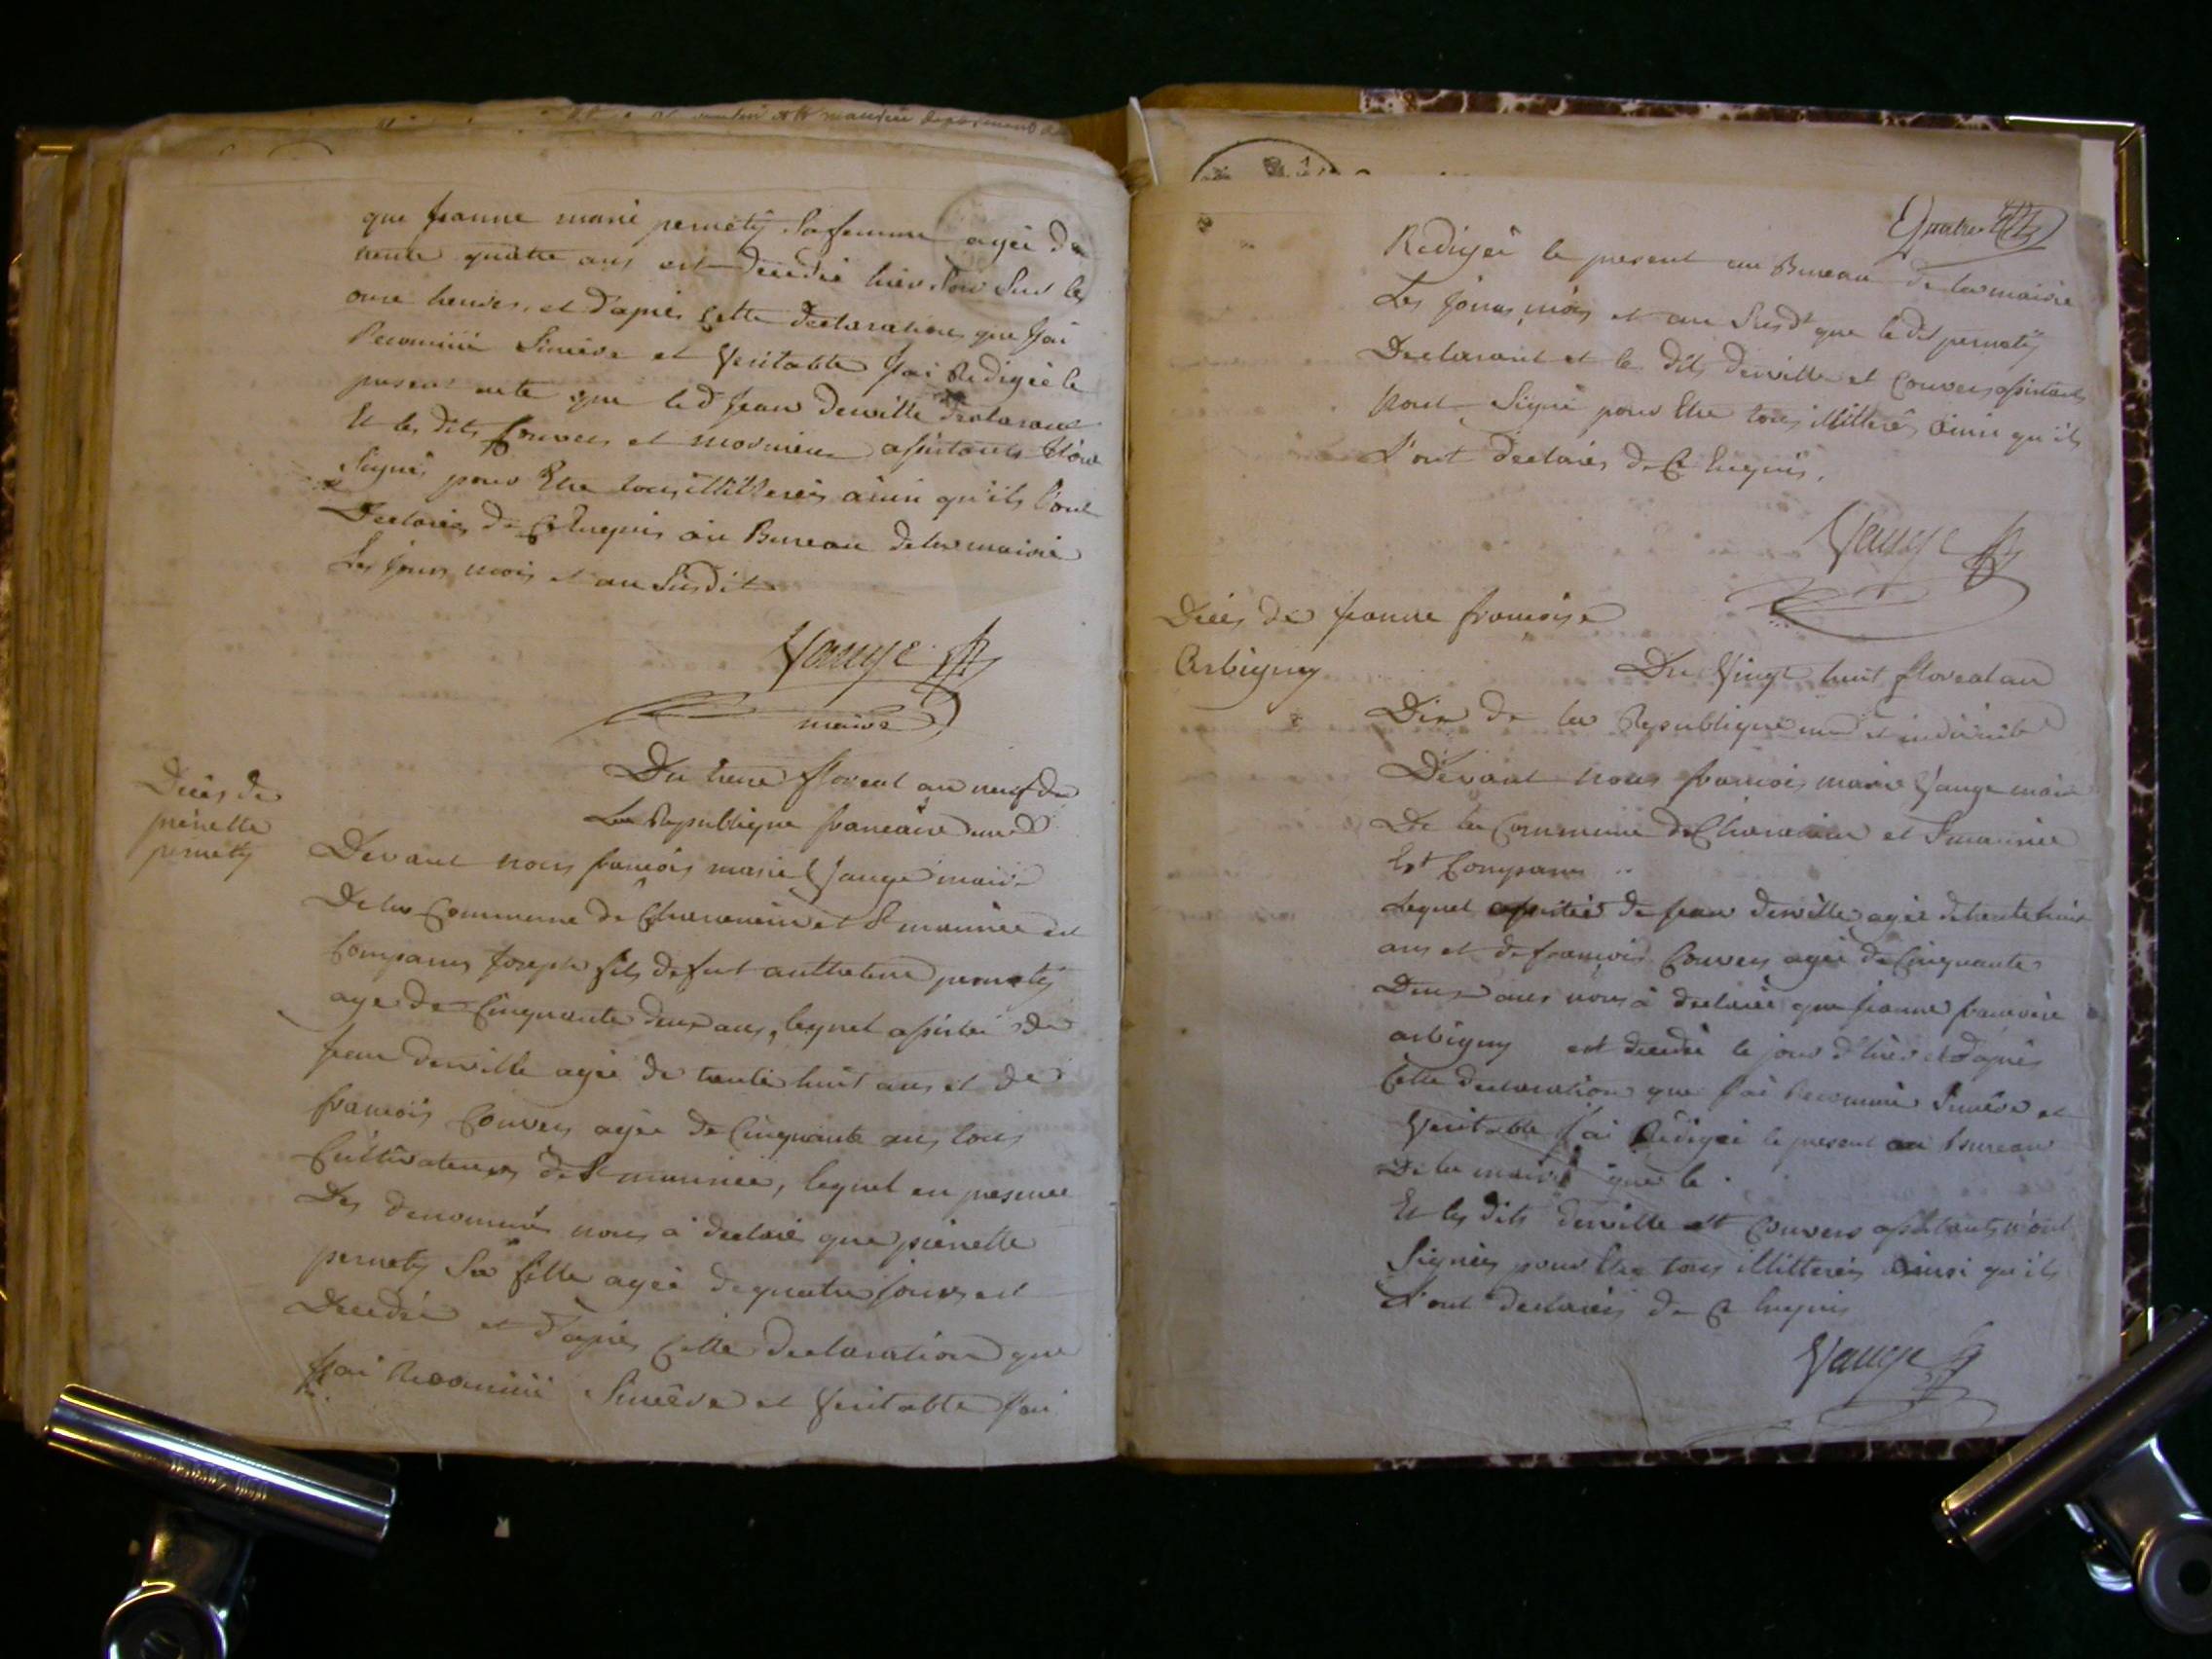 que jeanne marie pernety Sa femme agée de
trente quatre ans est décédée hier Soir Sur les
onze heures, et d'après cette declaration que J'ai
Reconnüe Sincère et Veritable J'ai Redigée le
present acte que led jean derville declarant
Et les dits Convers et assistants N'ont
Signés pour Etre tous illitterés ainsi qu'ils l'ont
Declarés de ce Enquis au Bureau de la mairie
Les jours mois et an Susdit
Vauge
maire
Décès de
pierrette
pernety
Du treize floreal an neuf de
La Republique francaise une
Devant nous francois marie Vauge maire
De la Commune de et St maurice est
Comparus Joseph fils de fut anthelme pernety
age de Cinquante deux ans, lequel assisté de
jean derville agée de trente huit ans et de
francois Convers agée de Cinquante ans tous
Cultivateurs de St maurice, lequel en presence
Des denommés nous a declaré que pierrette
pernety Sa fille agée de quatre jours est
Decedée et d'après Cette declaration que
J'ai Reconnüe Sincère et Veritable J'ai
Quatre
Redigée le present au Bureau de la mairie
Les jours, mois et an Susdt que le dt pernety
Declarant et les dits derville et Convers assistants
N'ont Signé pour Etre tous illitterés ainsi qu'ils
L'ont declarés de Ce Enquis.
Vauge
Décès de jeanne francoise
Arbigny
Du Vingt huit floreal an
Dix de la Republique une et indivisible
Devant nous francois marie Vauge maire
De la Commune de et St maurice
Est Comparus ..
Lequel assistée de jean derville agée de trente huit
ans et de francois Convers agée de Cinquante
Deux ans nous à declaré que jeanne francoise
arbigny est decedée le jour d'hier et d'après
Cette declaration que J'ai Reconnüe Sincère et
Veritable J'ai Redigée le present au bureau
De la mairie que le .
Et les dits derville et Convers assistants n'ont
Signés pour Etre tous illitterés ainsi qu'ils
L'ont declarés de Ce Enquis
Vauge